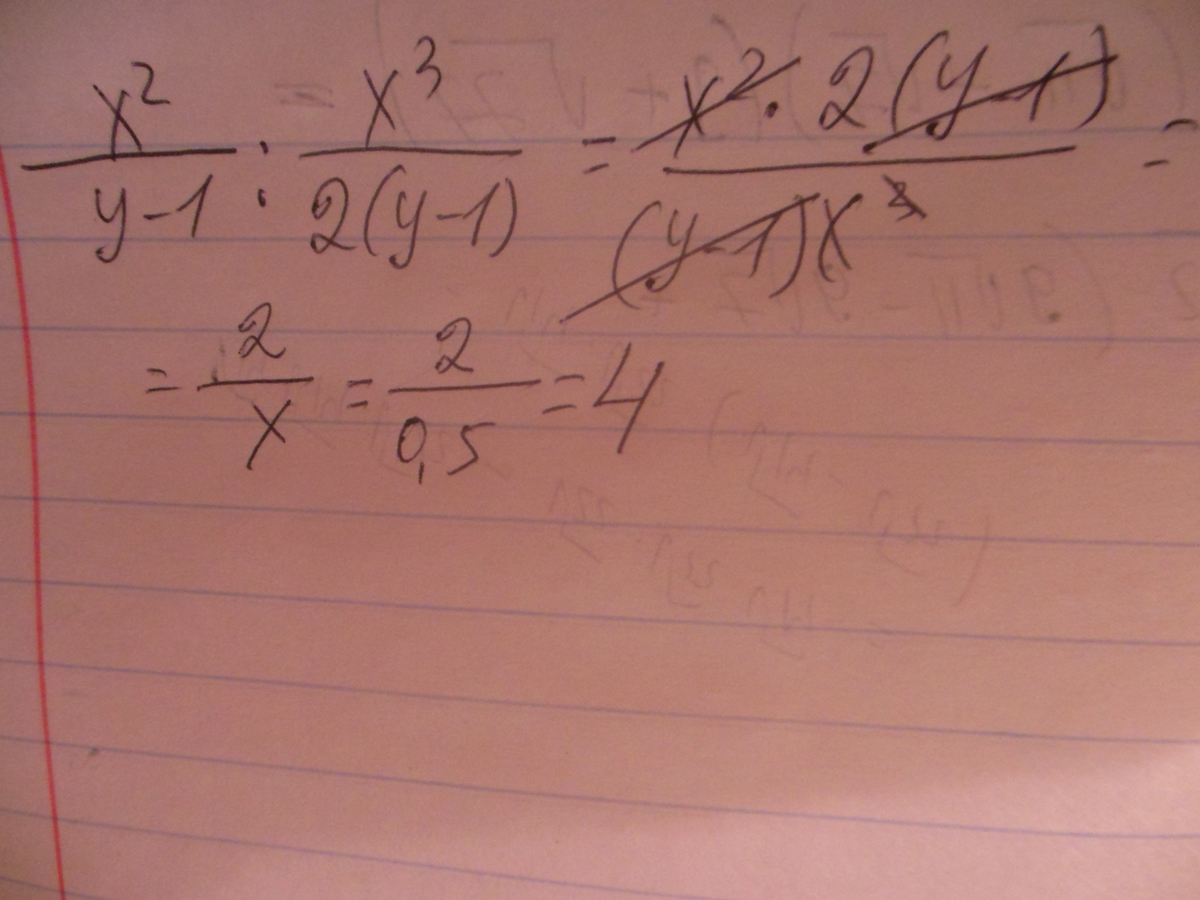 x²/(y-1) : x³/(2(y-1)) = (x² · 2(y-1))/((y-1)x³) =
= 2/x = 2/0,5 = 4